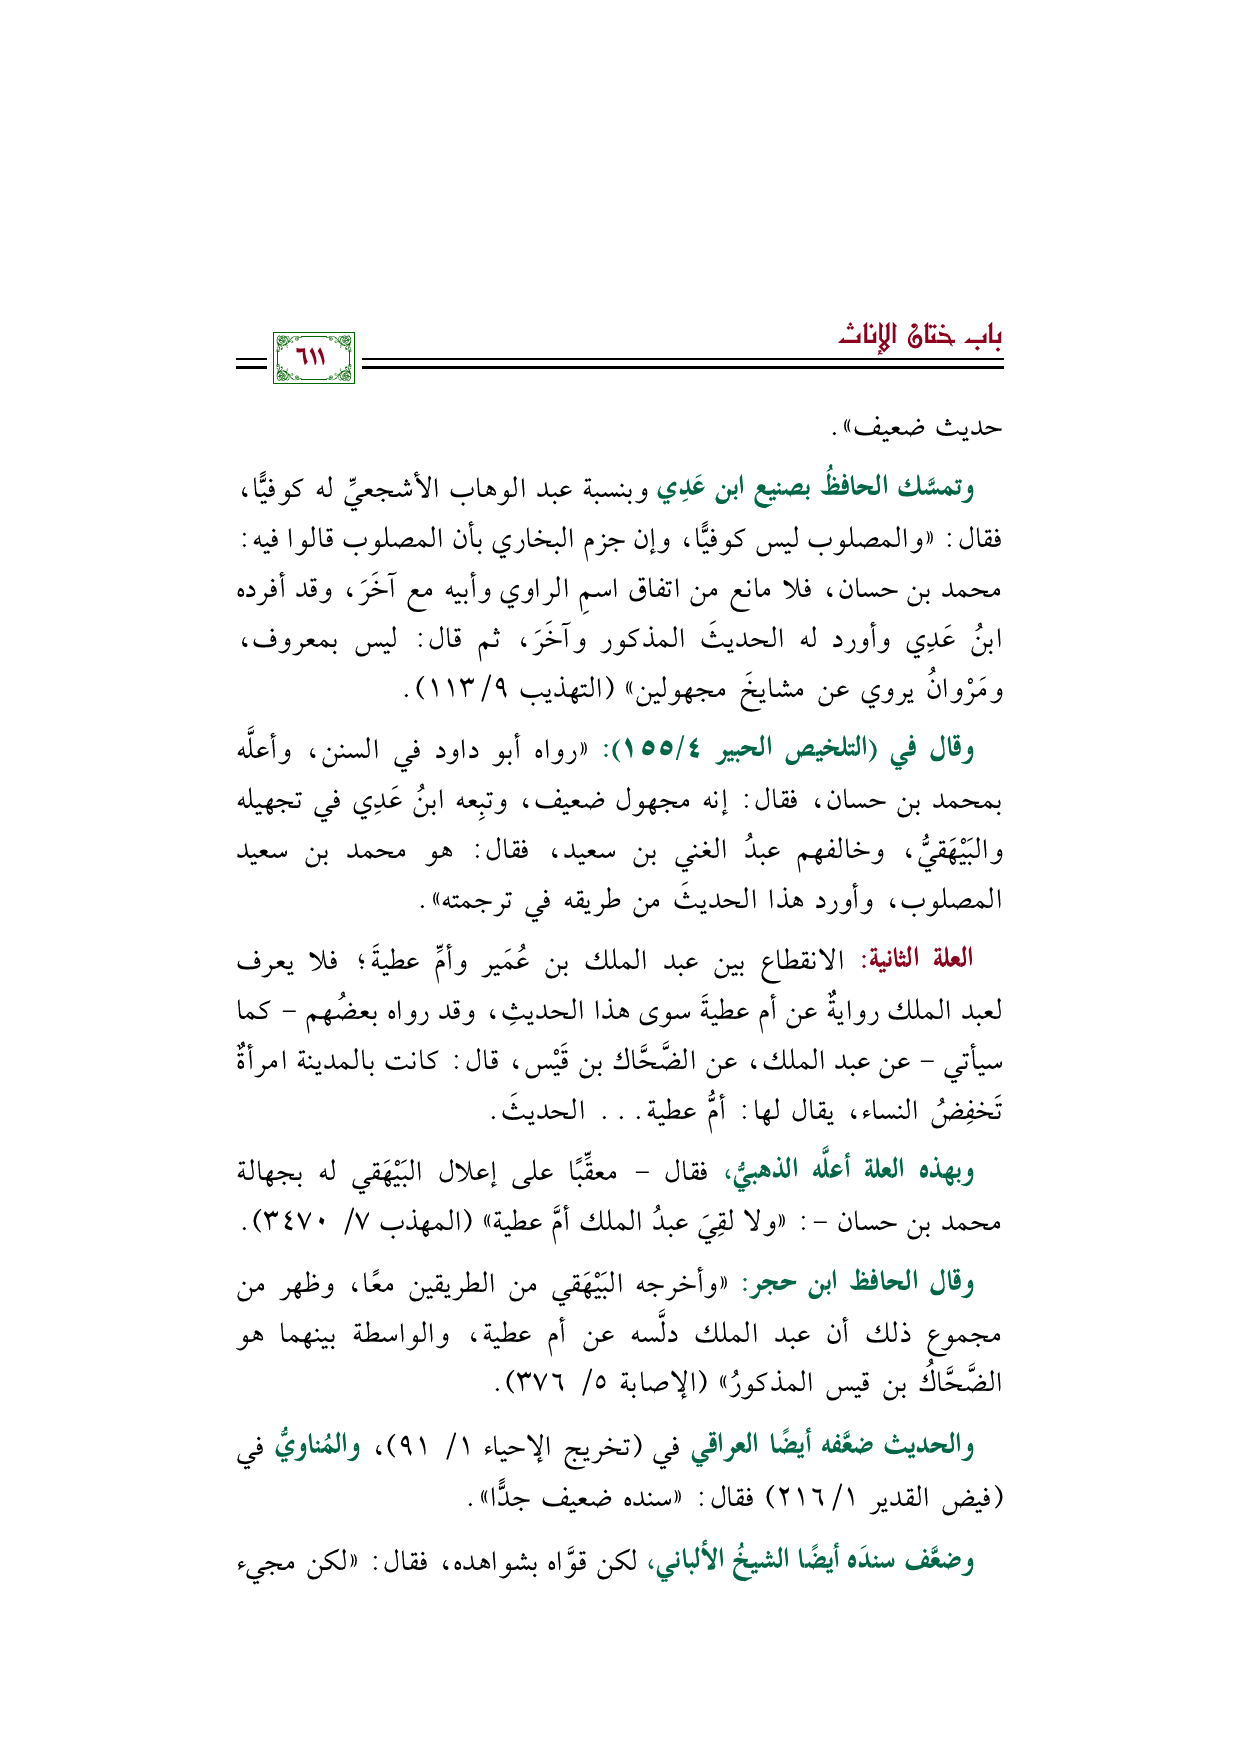 باب ختان الإناث
٦١١
حديث ضعيف».
وتمسَّك الحافظُ بصنيع ابن عَدِي وبنسبة عبد الوهاب الأشجعيِّ له كوفيًّا،
فقال: «والمصلوب ليس كوفيًّا، وإن جزم البخاري بأن المصلوب قالوا فيه:
محمد بن حسان، فلا مانع من اتفاق اسمِ الراوي وأبيه مع آخَرَ، وقد أفرده
ابنُ عَدِي وأورد له الحديثَ المذكور وآخَرَ، ثم قال: ليس بمعروف،
ومَرْوانُ يروي عن مشايخَ مجهولين» (التهذيب ٩/ ١١٣).
وقال في (التلخيص الحبير ٤/ ١٥٥): «رواه أبو داود في السنن، وأعلَّه
بمحمد بن حسان، فقال: إنه مجهول ضعيف، وتبِعه ابنُ عَدِي في تجهيله
والبَيْهَقيُّ، وخالفهم عبدُ الغني بن سعيد، فقال: هو محمد بن سعيد
المصلوب، وأورد هذا الحديثَ من طريقه في ترجمته».
العلة الثانية: الانقطاع بين عبد الملك بن عُمَير وأمِّ عطيةَ؛ فلا يعرف
لعبد الملك روايةٌ عن أم عطيةَ سوى هذا الحديثِ، وقد رواه بعضُهم - كما
سيأتي - عن عبد الملك، عن الضَّحَّاك بن قَيْس، قال: كانت بالمدينة امرأةٌ
تَخفِضُ النساء، يقال لها: أمُّ عطية... الحديثَ.
وبهذه العلة أعلَّه الذهبيُّ، فقال - معقِّبًا على إعلال البَيْهَقي له بجهالة
محمد بن حسان -: «ولا لقِيَ عبدُ الملك أمَّ عطية» (المهذب ٧/ ٣٤٧٠).
وقال الحافظ ابن حجر: «وأخرجه البَيْهَقي من الطريقين معًا، وظهر من
مجموع ذلك أن عبد الملك دلَّسه عن أم عطية، والواسطة بينهما هو
الضَّحَّاكُ بن قيس المذكورُ» (الإصابة ٥/ ٣٧٦).
والحديث ضعَّفه أيضًا العراقي في (تخريج الإحياء ١/ ٩١)، والمُناويُّ في
(فيض القدير ١/ ٢١٦) فقال: «سنده ضعيف جدًّا».
وضعَّف سندَه أيضًا الشيخُ الألباني، لكن قوَّاه بشواهده، فقال: «لكن مجيء